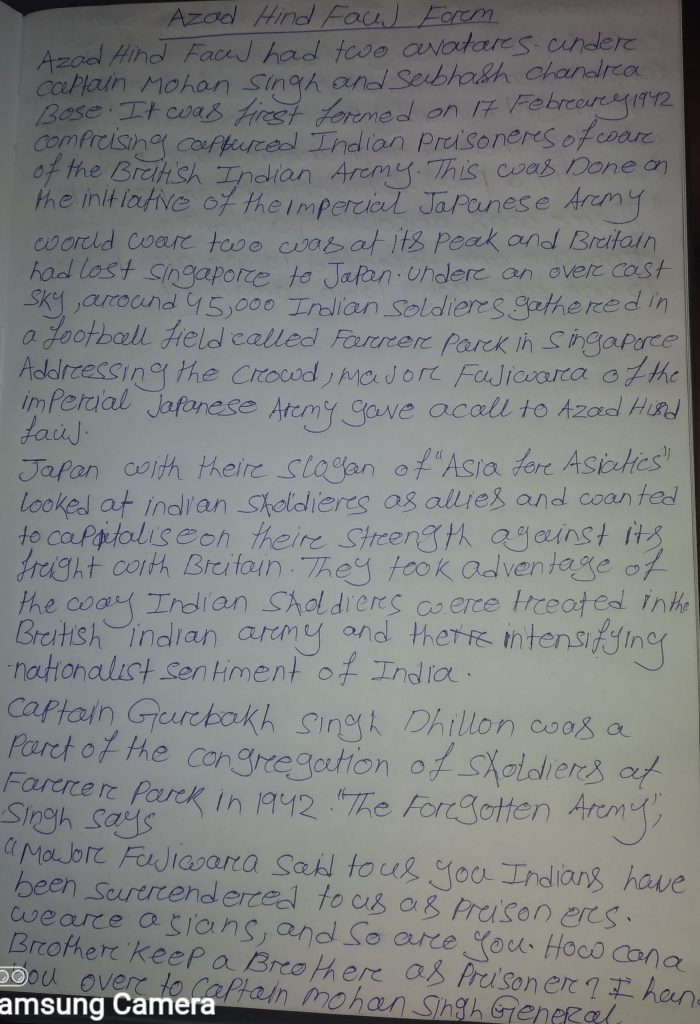 Azad Hind Fauj Form
Azad Hind Fauj had two avatars. under
captain Mohan Singh and Subhash Chandra
Bose. It was first formed on 17 February 1942
comprising captured Indian Prisoners of war
of the British Indian Army. This was Done on
the initiative of the imperial Japanese Army
world war two was at its peak and Britain
had lost Singapore to Japan. under an over cast
sky, around 45,000 Indian soldiers gathered in
a football field called Farrer Park in Singapore
Addressing the crowd, major Fujiwara of the
imperial Japanese Army gave a call to Azad Hind
fauj.
Japan with their slogan of "Asia for Asiatics"
looked at indian Sholdiers as allies and wanted
to capitalise on their strength against its
freight with Britain. They took advantage of
the way Indian Sholdiers were treated in the
British indian army and their intensifying
nationalist sentiment of India.
Captain Gurbakh Singh Dhillon was a
Part of the congregation of Sholdiers at
Farrer Park in 1942. "The Forgotten Army",
Singh says
"Major Fujiwara said to us you Indians have
been surrendered to us as prisoners.
we are asians, and so are you. How can a
Brother keep a Brother as Prisoner? I han
you over to Captain Mohan Singh General
amsung Camera